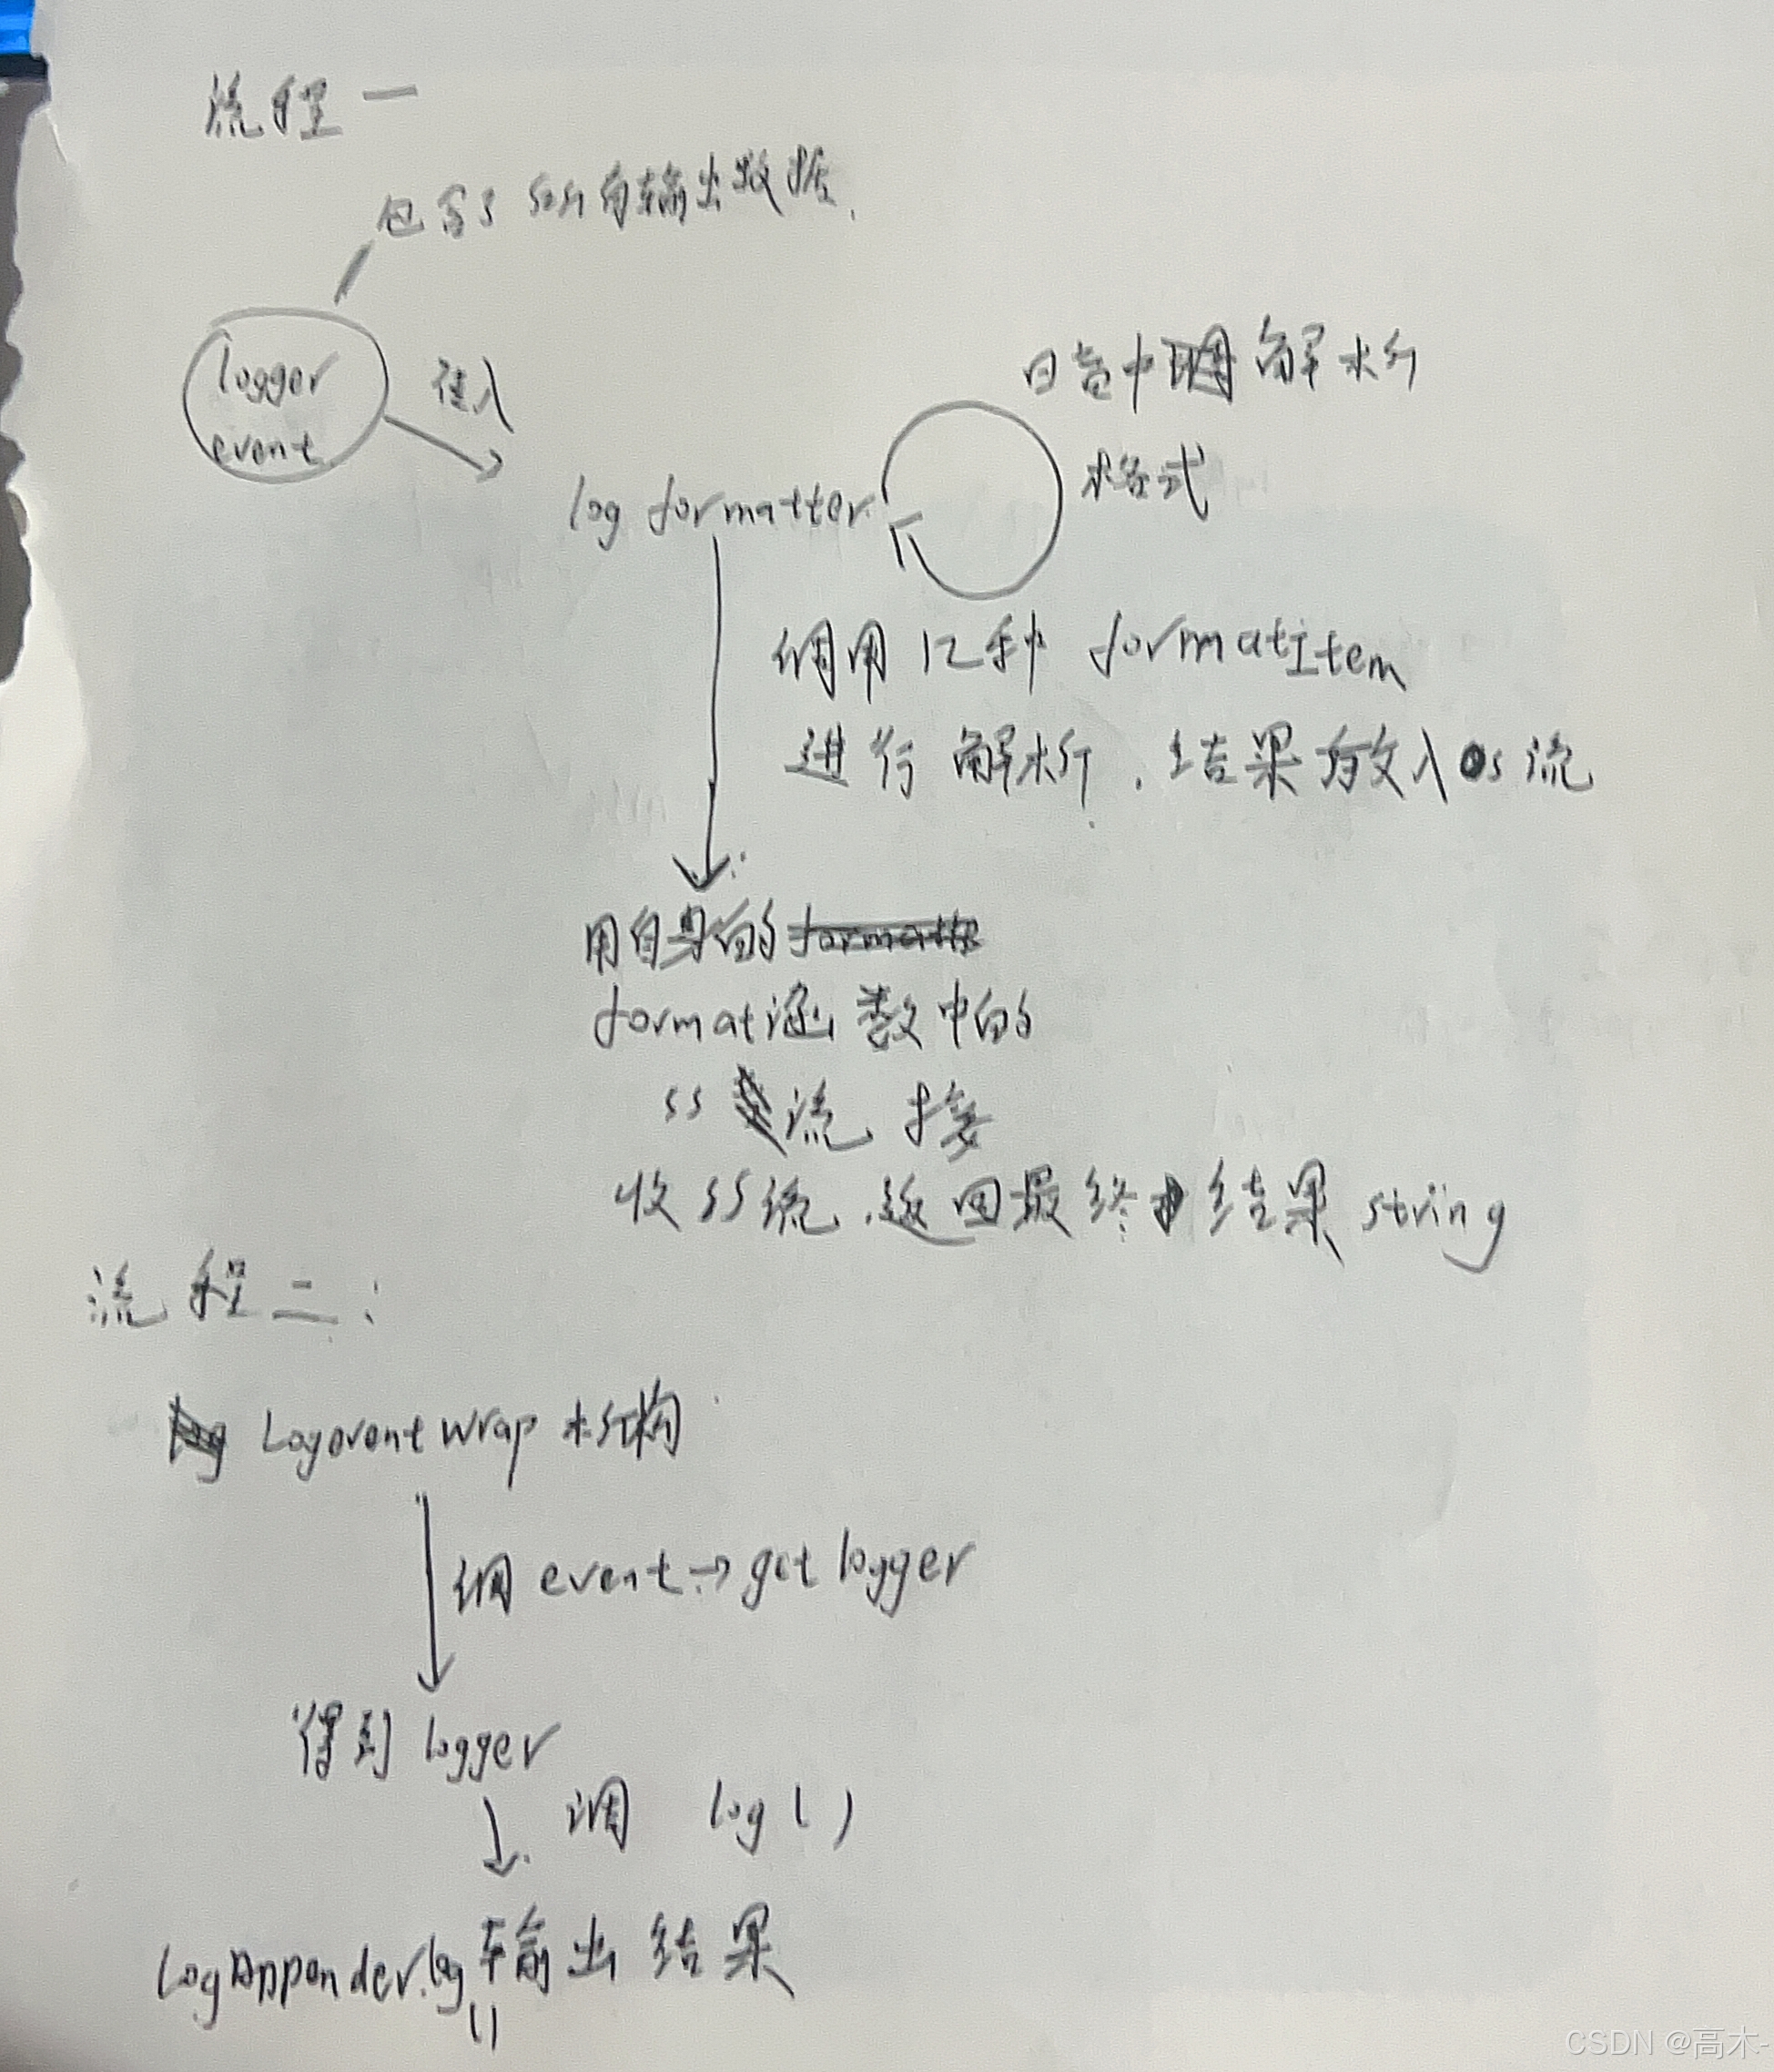 流程一
包含了所有输出数据.
logger
event
传入
日志中调解析
格式
log formatter
调用12种 formatItem
进行解析,结果放入os流
用自身的
format函数中的
ss 流 接
收ss流.返回最终结果string
流程二:
Logeventwrap 析构
调 event->get logger
得到 logger
调 log()
LogAppender.log()输出结果
CSDN @高木-